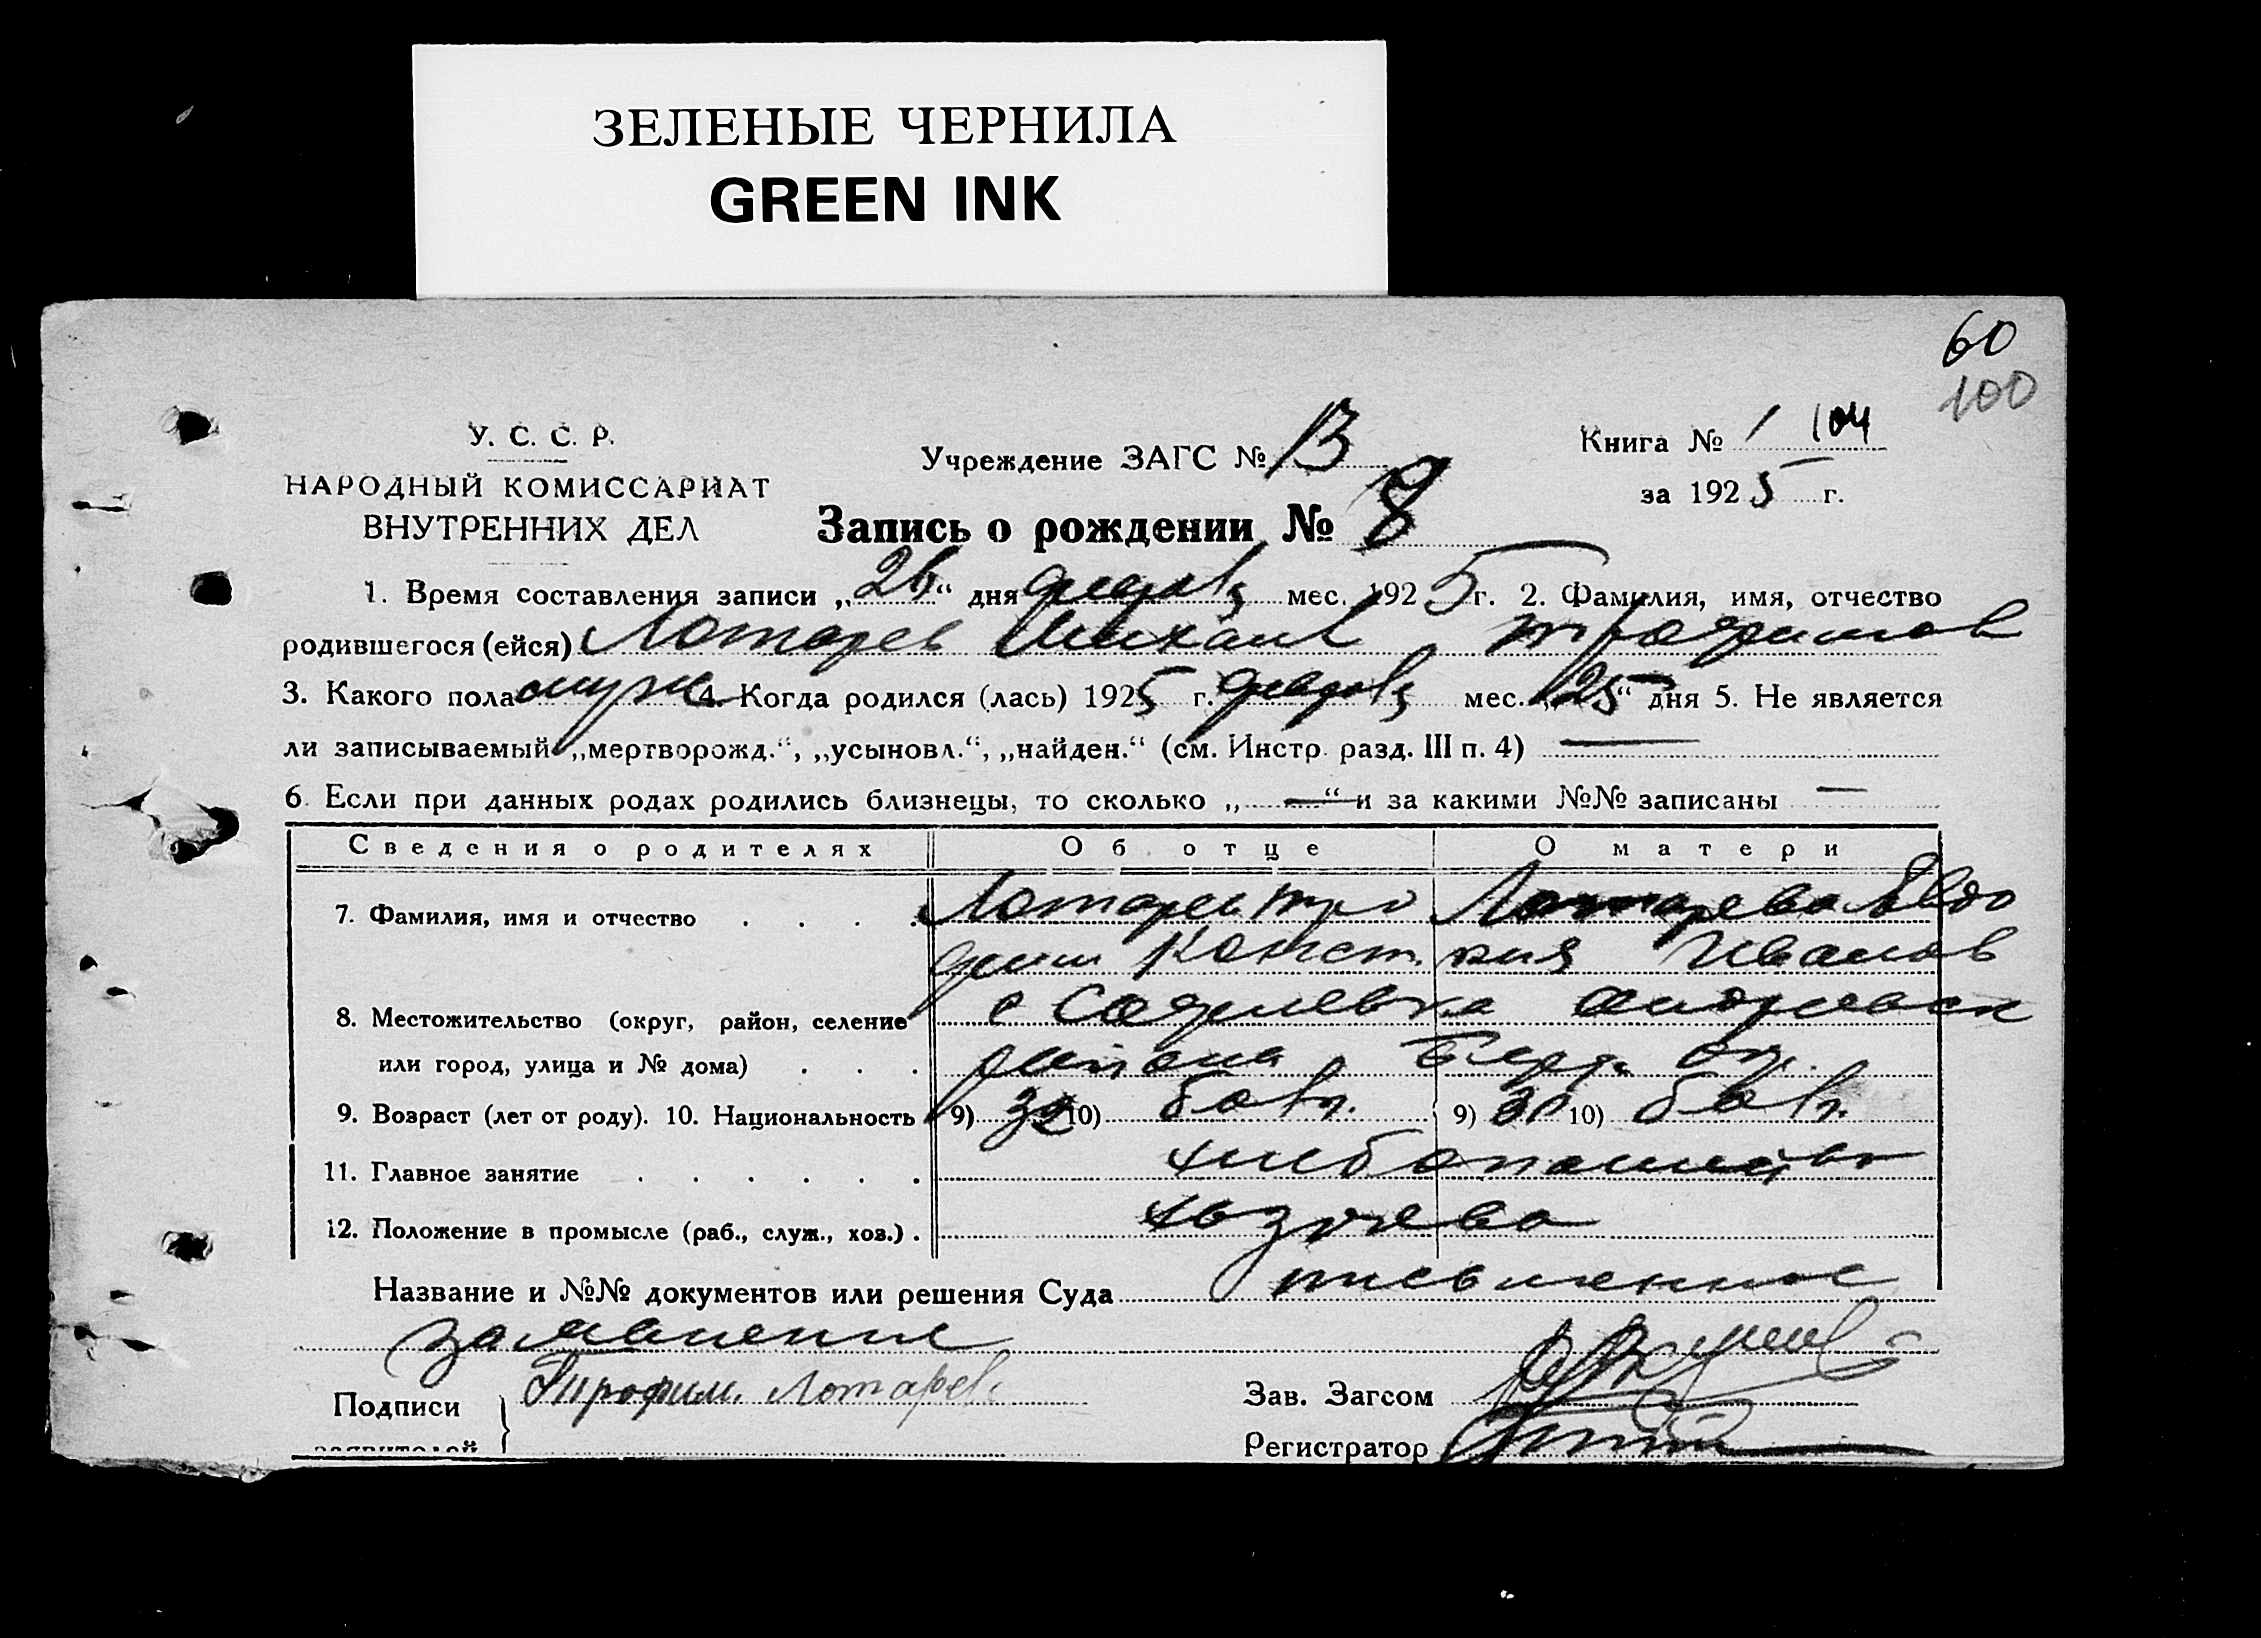 ЗЕЛЕНЫЕ ЧЕРНИЛА
GREEN INK
60
100
У. С. С. Р.
НАРОДНЫЙ КОМИССАРИАТ
ВНУТРЕННИХ ДЕЛ
Учреждение ЗАГС № 13
Книга № 1 104
за 1925 г.
Запись о рождении № 8
1. Время составления записи „26“ дня мес. 1925 г. 2. Фамилия, имя, отчество
родившегося (ейся) Лотарев Михаил Трофимов
3. Какого пола муж 4. Когда родился (лась) 1925 г. мес. „25“ дня 5. Не является
ли записываемый „мертворожд.“, „усыновл.“, „найден.“ (см. Инстр. разд. III п. 4) —
6. Если при данных родах родились близнецы, то сколько „—“ и за какими №№ записаны —
Сведения о родителях Об отце О матери
7. Фамилия, имя и отчество . . . . Лотарев Тро Лотарева Евдо
фим Конст. кия Иванов
8. Местожительство (округ, район, селение с Софиевка Андреевск
или город, улица и № дома) . . . района Бердян. ок.
9. Возраст (лет от роду). 10. Национальность 9) 32 10) болг. 9) 30 10) болг.
11. Главное занятие . . . . . . хлебопашество
12. Положение в промысле (раб., служ., хоз.) . хозяева
Название и №№ документов или решения Суда письменное
заявление
Подписи заявителей } Трофим Лотарев
Зав. Загсом
Регистратор